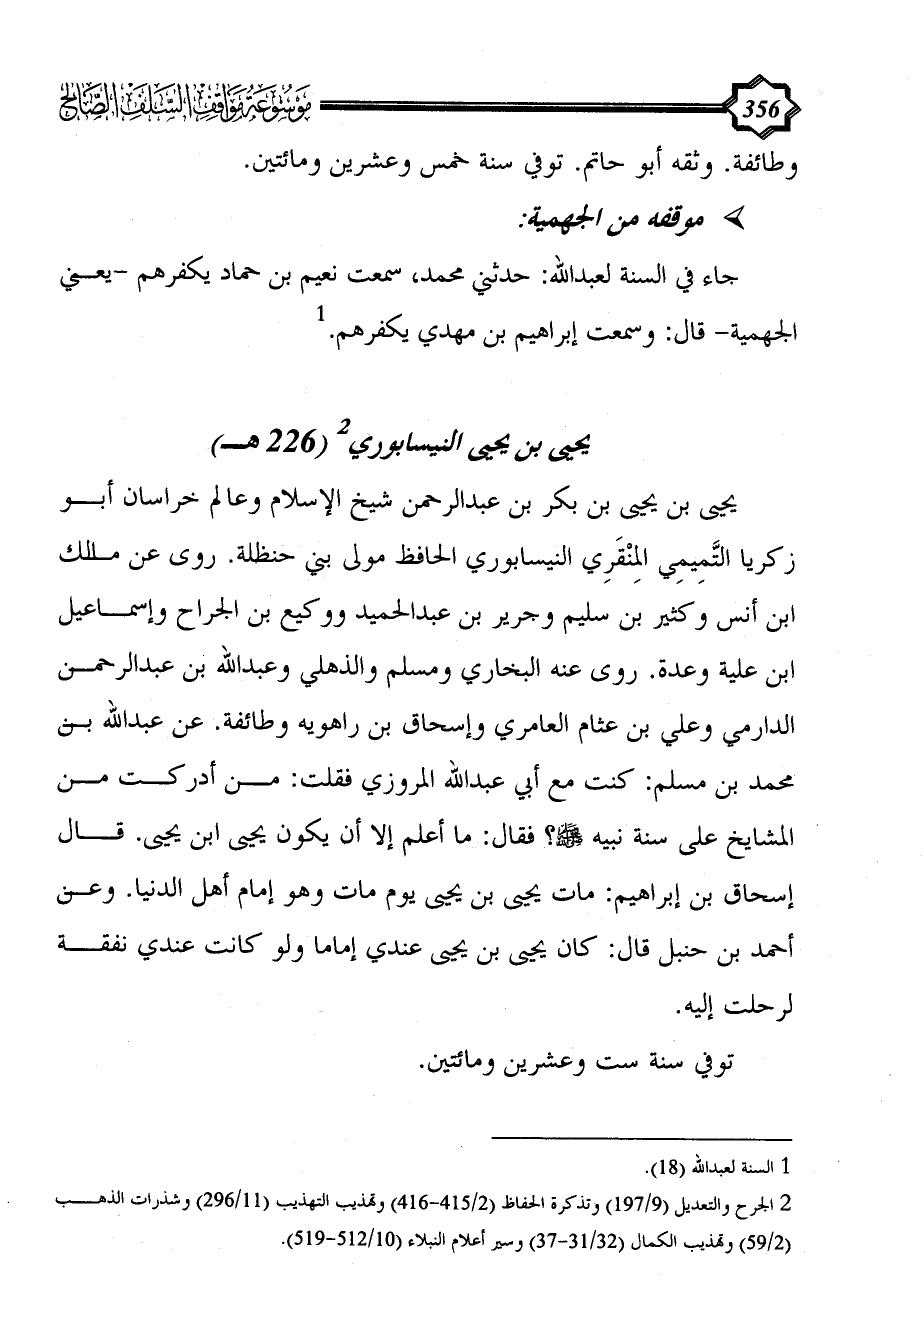 موسوعة مواقف السلف الصالح
356
وطائفة. وثقه أبو حاتم. توفي سنة خمس وعشرين ومائتين.
موقفه من الجهمية:
جاء في السنة لعبدالله: حدثني محمد، سمعت نعيم بن حماد يكفرهم -يعني
الجهمية- قال: وسمعت إبراهيم بن مهدي يكفرهم.1
يحيى بن يحيى النيسابوري2 (226 هـ)
يحيى بن يحيى بن بكر بن عبدالرحمن شيخ الإسلام وعالم خراسان أبو
زكريا التَّمِيمِي المِنْقَرِي النيسابوري الحافظ مولى بني حنظلة. روى عن مالك
ابن أنس وكثير بن سليم وجرير بن عبدالحميد ووكيع بن الجراح وإسماعيل
ابن علية وعدة. روى عنه البخاري ومسلم والذهلي وعبدالله بن عبدالرحمن
الدارمي وعلي بن عثام العامري وإسحاق بن راهويه وطائفة. عن عبدالله بن
محمد بن مسلم: كنت مع أبي عبدالله المروزي فقلت: من أدركت من
المشايخ على سنة نبيه ﷺ؟ فقال: ما أعلم إلا أن يكون يحيى ابن يحيى. قال
إسحاق بن إبراهيم: مات يحيى بن يحيى يوم مات وهو إمام أهل الدنيا. وعن
أحمد بن حنبل قال: كان يحيى بن يحيى عندي إماما ولو كانت عندي نفقة
لرحلت إليه.
توفي سنة ست وعشرين ومائتين.
1 السنة لعبدالله (18).
2 الجرح والتعديل (197/9) وتذكرة الحفاظ (415/2-416) وتهذيب التهذيب (296/11) وشذرات الذهب
(59/2) وتهذيب الكمال (31/32-37) وسير أعلام النبلاء (512/10-519).